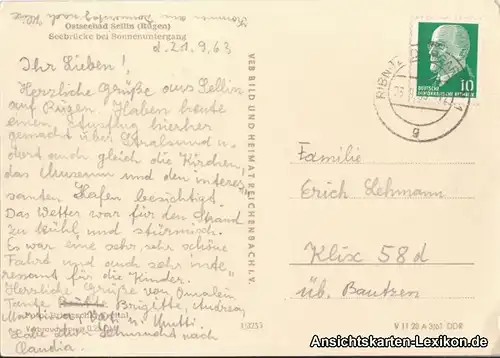 Kommen am Donnerstag nach Klix
Ostseebad Sellin (Rügen)
Seebrücke bei Sonnenuntergang
d. 21.9.63
Ihr Lieben!
Herzliche Grüße aus Sellin
auf Rügen. Haben heute
einen Ausflug hierher
gemacht über Stralsund u.
dort auch gleich die Kirchen,
das Museum und den interes-
santen Hafen besichtigt.
Das Wetter war für den Strand
zu kühl und stürmisch.
Es war eine sehr, sehr schöne
Fahrt und auch sehr inte-
ressant für die Kinder.
Herzliche Grüße von Omalein
Tante Brigitte, Andrea,
Vati u. Mutti
Habe schon Sehnsucht nach
Claudia.
VEB BILD UND HEIMAT REICHENBACH I. V.
DEUTSCHE
DEMOKRATISCHE REPUBLIK
10
RIBNITZ
g
Familie
Erich Lehmann
Klix 58d
üb. Bautzen
V 11 28 A 3/61 DDR
Ansichtskarten-Lexikon.de